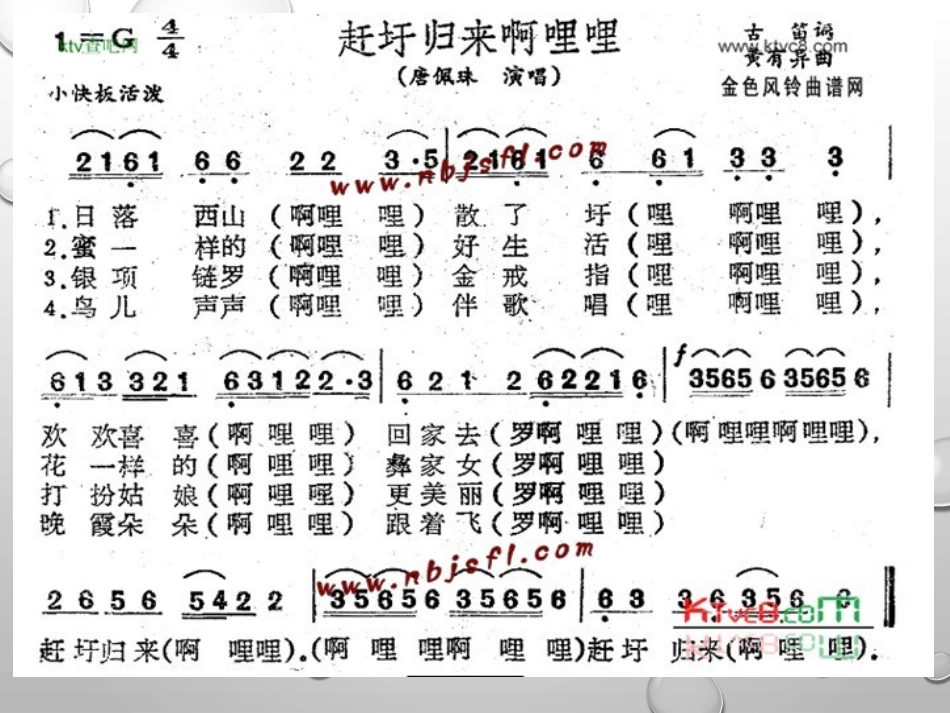 1=G 4/4
赶圩归来啊哩哩
(唐佩珠 演唱)
古 笛词
黄有异曲
小快板活泼
ktv查吧网
www.ktvc8.com
金色风铃曲谱网
2161 66 22 3·5 2161 6 61 33 3
www.nbjsfl.com
1.日落 西山(啊哩 哩)散了 圩(哩 啊哩 哩),
2.蜜一 样的(啊哩 哩)好生 活(哩 啊哩 哩),
3.银项 链罗(啊哩 哩)金戒 指(哩 啊哩 哩),
4.鸟儿 声声(啊哩 哩)伴歌 唱(哩 啊哩 哩),
613 321 63122·3 621 262216 f 35656 35656
欢 欢喜 喜(啊 哩 哩) 回家去(罗啊 哩 哩)(啊哩哩啊哩哩),
花 一样 的(啊 哩 哩) 彝家女(罗啊 哩 哩)
打 扮姑 娘(啊 哩 哩) 更美丽(罗啊 哩 哩)
晚 霞朵 朵(啊 哩 哩) 跟着飞(罗啊 哩 哩)
2656 5422 35656 35656 63 36 356
www.nbjsfl.com
KTVC8.COM
赶圩归来(啊 哩哩).(啊 哩 哩啊 哩 哩)赶圩 归来(啊 哩 哩).